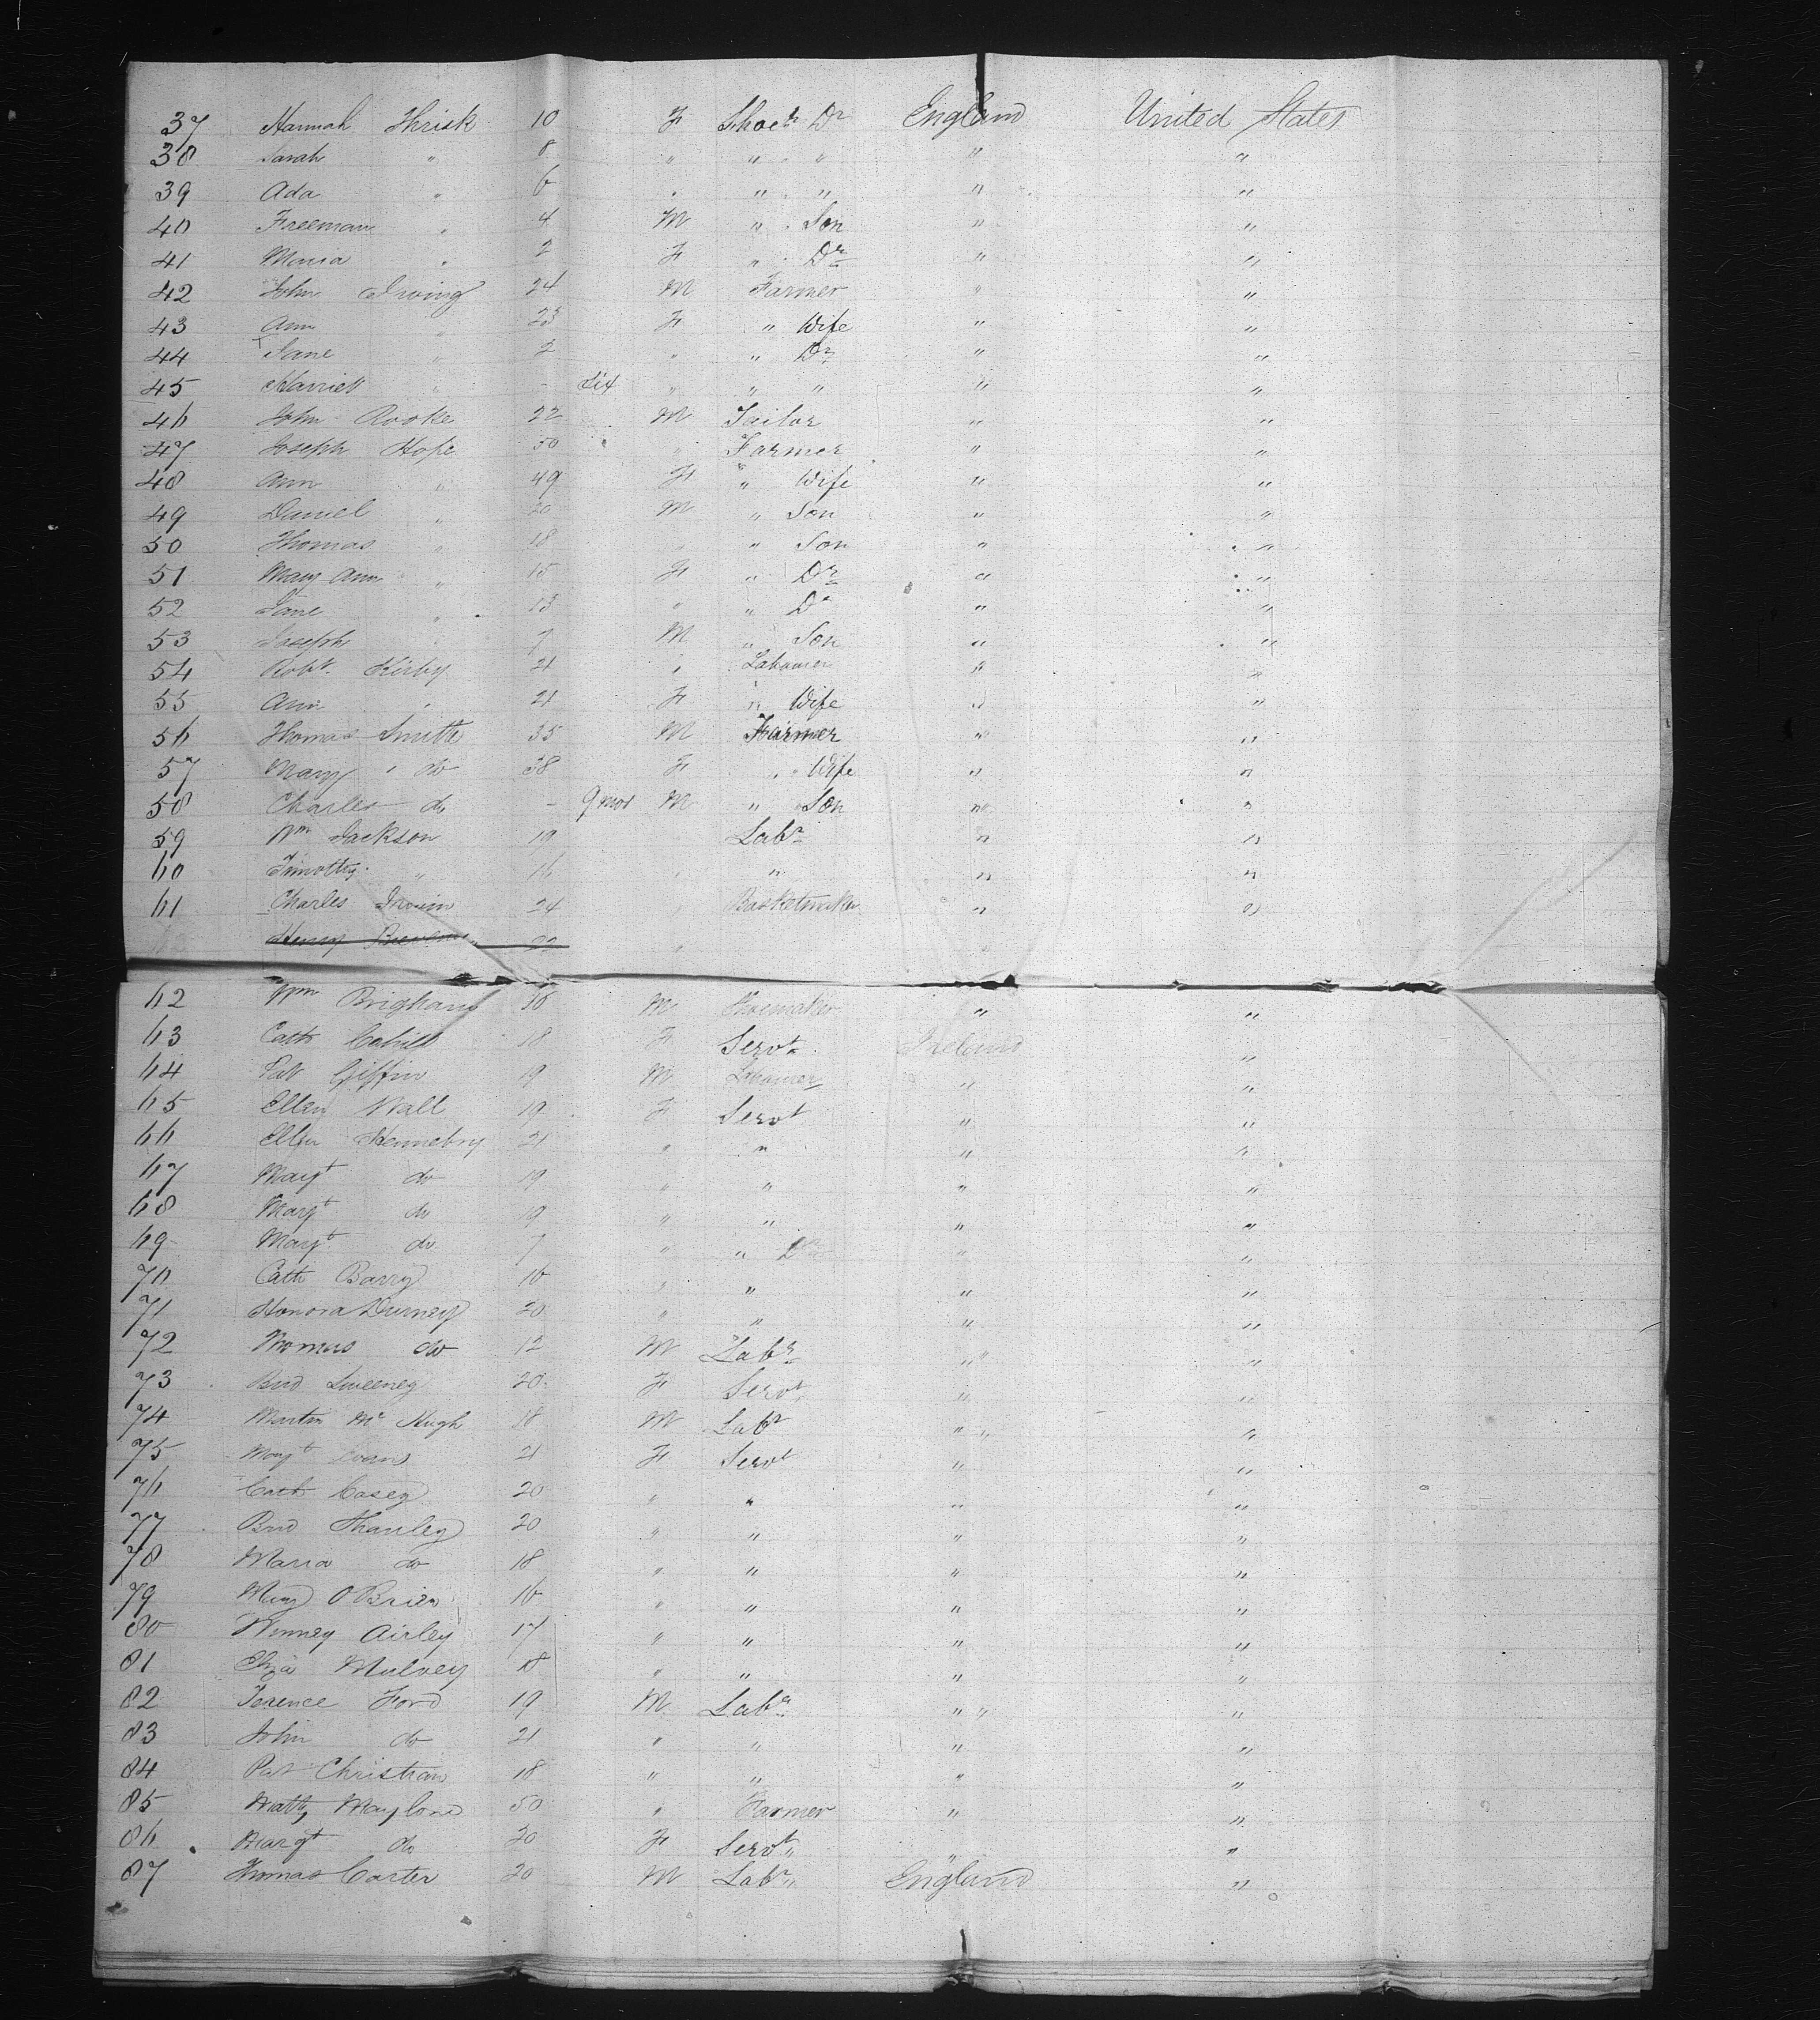 37 Hannah Thrisk 10 F Shoer Dr England United States
38 Sarah " 8 " " " " "
39 Ada " 6 " " " " "
40 Freeman " 4 M " Son " "
41 Maria " 2 F " Dr " "
42 John Irving 24 M Farmer " "
43 Ann " 23 F " Wife " "
44 Jane " 2 " " Dr " "
45 Harriet " - Six " " " " "
46 John Rooke 22 M Tailor " "
47 Joseph Hope 50 " Farmer " "
48 Ann " 49 F " Wife " "
49 Daniel " 20 M " Son " "
50 Thomas " 18 " " Son " "
51 Mary Ann " 15 F " Dr " "
52 Jane " 13 " " Dr " "
53 Joseph " 7 M " Son " "
54 Robt. Kirby 21 " Labourer " "
55 Ann " 21 F " Wife " "
56 Thomas Smith 35 M Farmer " "
57 Mary " do 38 F " Wife " "
58 Charles do - 9 mos M " Son " "
59 Wm Jackson 19 Labr " "
60 Timothy " 16 " " " "
61 Charles Irwin 24 " Basketmaker " "
Henry 22 " "
62 Wm Brigham 18 M Shoemaker " "
63 Cath Cahill 18 F Servt Ireland "
64 Pat Giffin 19 M Labourer " "
65 Ellen Wall 19 F Servt " "
66 Ellen Hennebry 21 " " " "
67 Margt do 19 " " " "
68 Margt do 19 " " " "
69 Margt do 7 " " Dr " "
70 Cath Barry 16 " " " "
71 Honora Durney 20 " " " "
72 Thomas do 12 M Labr " "
73 Brid Sweeney 20 F Servt " "
74 Martin Mc Hugh 18 M Labr " "
75 Margt Evans 21 F Servt " "
76 Cath Casey 20 " " " "
77 Brid Shanley 20 " " " "
78 Maria do 18 " " " "
79 Mary O Brien 16 " " " "
80 Winney Airley 17 " " " "
81 Eliza Mulvey 18 " " " "
82 Terence Ford 19 M Labr " "
83 John do 21 " " " "
84 Pat Christian 18 " " " "
85 Matty 50 " Farmer " "
86 Margt do 20 F Servt " "
87 Thomas Carter 20 M Labr England "